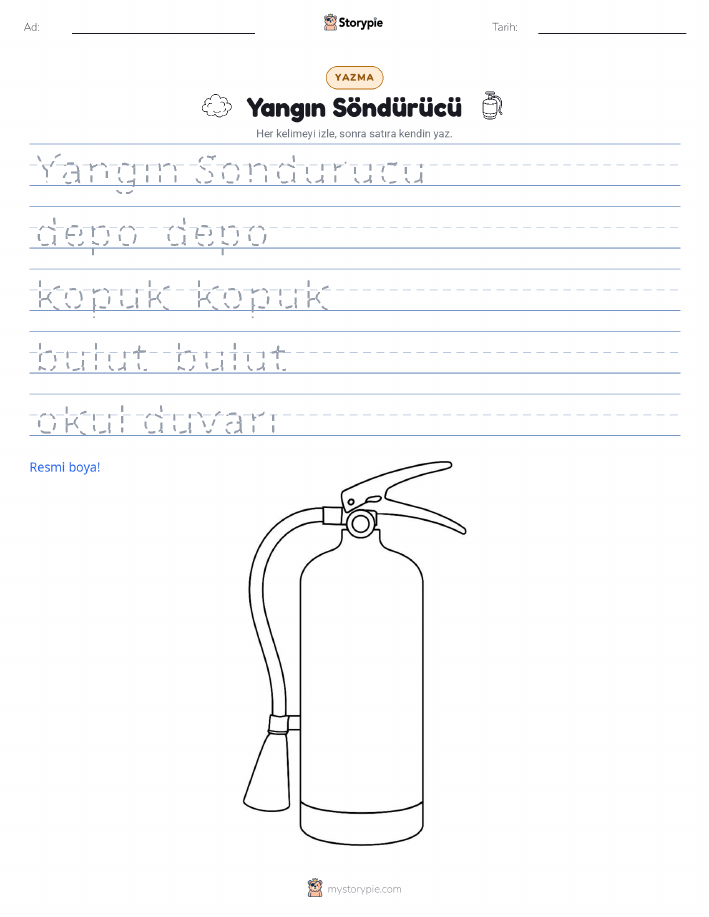 Ad:
Storypie
Tarih:
YAZMA
Yangın Söndürücü
Her kelimeyi izle, sonra satıra kendin yaz.
Yangın Sondurucu
depo depo
kopuk kopuk
bulut bulut
okul duvarı
Resmi boya!
mystorypie.com